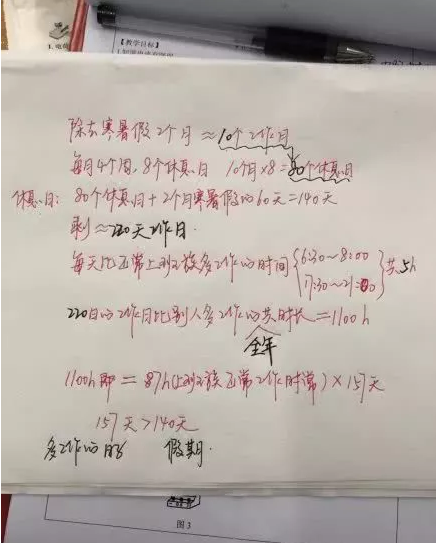 【教学目标】
除去寒暑假2个月≈10个工作月
每月4个周，8个休息日 10个月×8=80个休息日
休息日：80个休息日+2个月寒暑假的60天=140天
剩≈220天工作日.
每天比正常上班族多工作的时间{6:30~8:00 17:30~21:00}共5h
220日的工作日比别人多工作的共时长=1100h
全年
1100h即=8h(上班族正常工作时常)×157天
157天>140天
多工作的时 假期.
图3